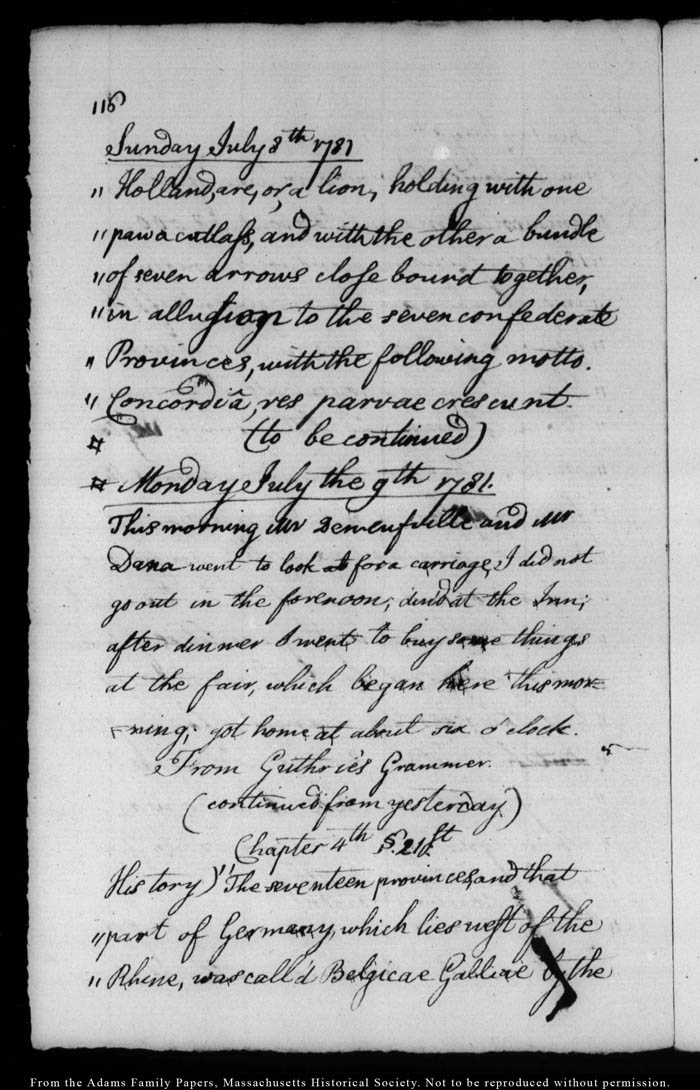 116
Sunday July 8th 1781
" Holland, are, or, a lion, holding with one
" paw a cutlass, and with the other a bundle
" of seven arrows close bound together,
" in allusion to the seven confederate
" Provinces, with the following motto.
" Concordiâ, res parvae crescunt.
(to be continued)
Monday July the 9th 1781.
This morning Mr Demenfville and Mr
Dana went to look at for a carriage, I did not
go out in the forenoon; dined at the Inn;
after dinner I went to buy some things
at the fair, which began here this mor=
=ning; got home at about six o'clock.
From Guthrie's Grammer.
(continued from yesterday.)
Chapter 4th S. 21st
History) "The seventeen provinces, and that
" part of Germany, which lies west of the
" Rhine, was call'd Belgicae Galliae by the
From the Adams Family Papers, Massachusetts Historical Society. Not to be reproduced without permission.